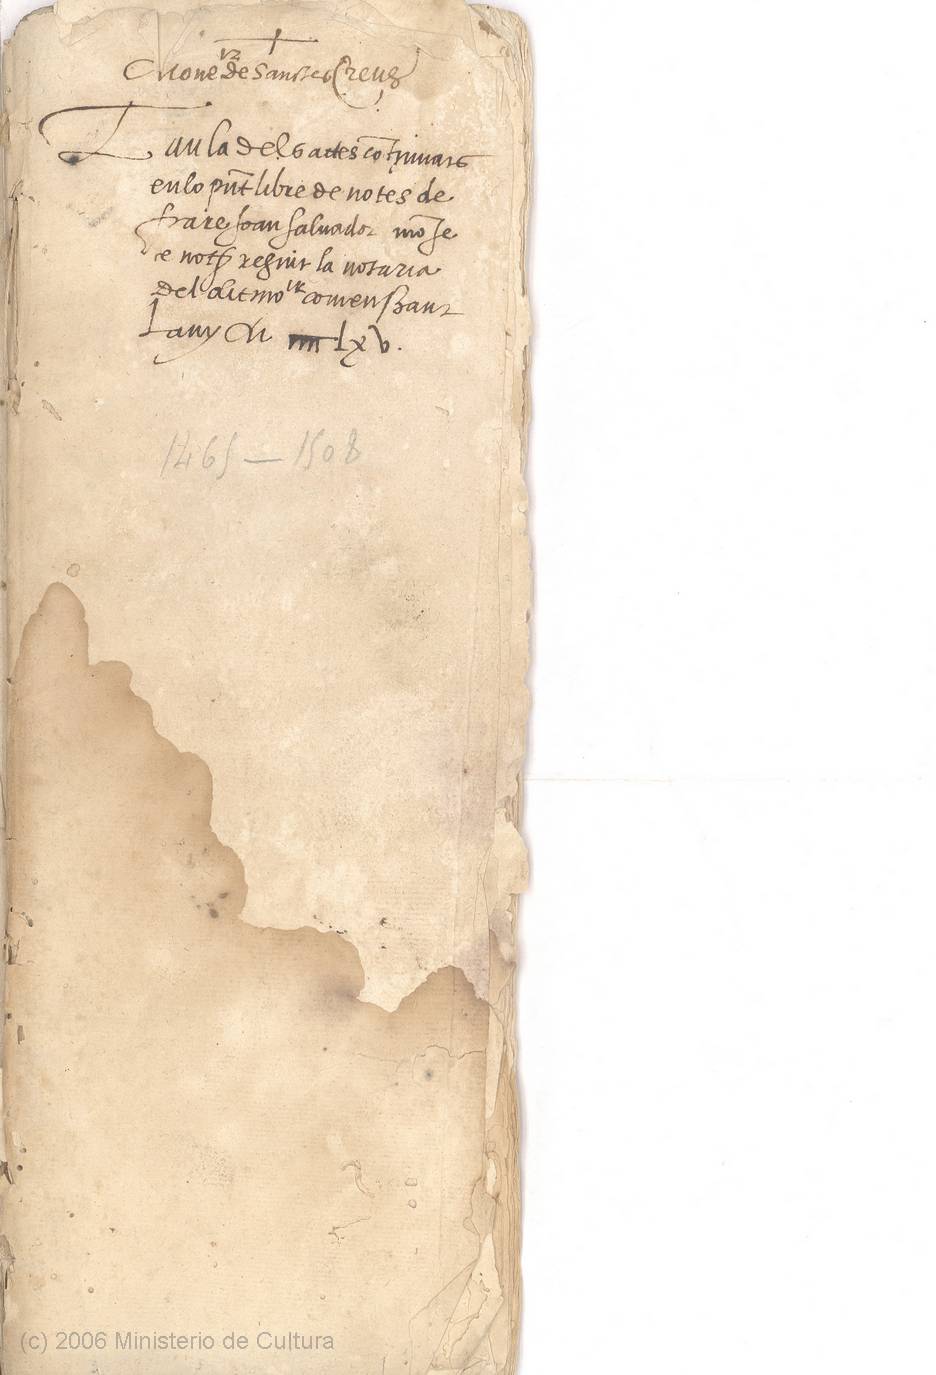 Mone^vr de Sanctes Creus
Taula dels actes co~tinuats
en lo p~nt libre de notes de
frare Joan Salvador mo~je
e not regint la notaria
del dit mo^vr comensant
Lany M iiii lxv.
1465 — 1508
(c) 2006 Ministerio de Cultura